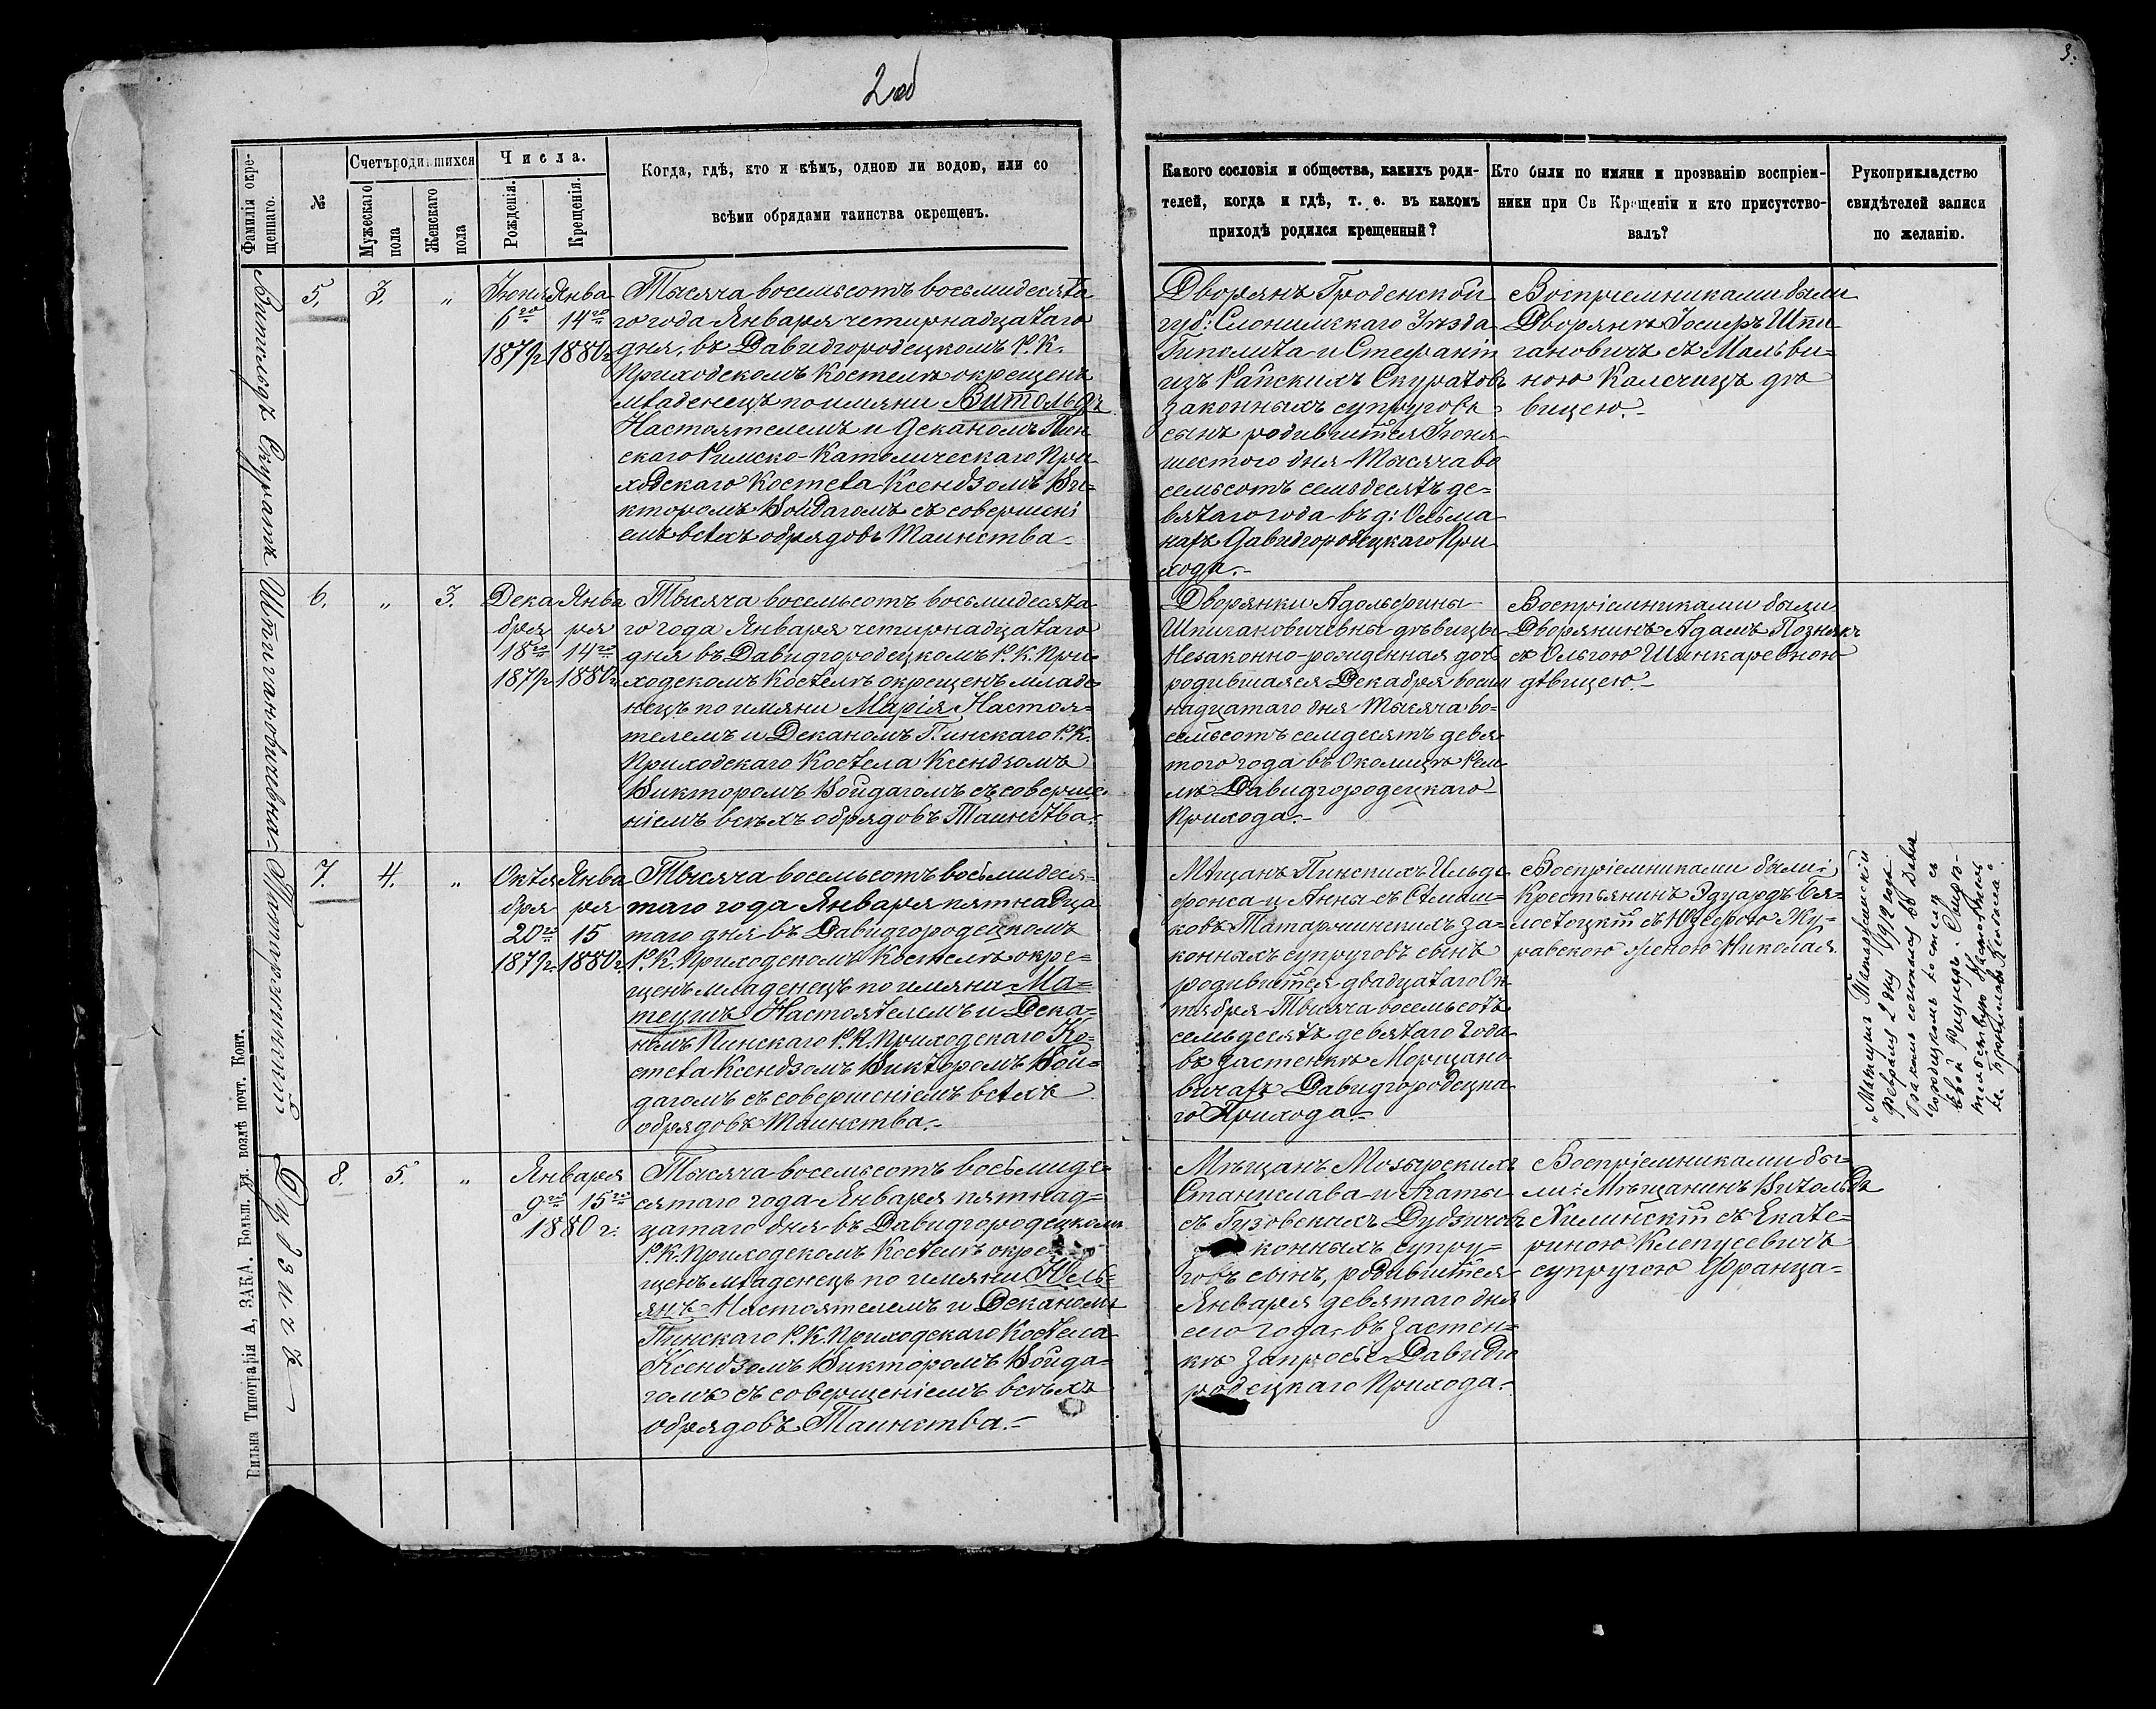 2 об
3.
Фамилія окре-
щеннаго.
№
Счетъ родившихся
Мужескаго
пола
Женскаго
пола
Числа.
Рожденія.
Крещенія.
Когда, гдѣ, кто и кѣмъ, одною ли водою, или со
всѣми обрядами таинства окрещенъ.
Какого сословія и общества, какихъ роди-
телей, когда и гдѣ, т. е. въ какомъ
приходѣ родился крещенный?
Кто были по имяни и прозванію воспріем-
ники при Св Крещеніи и кто присутство-
валъ?
Рукоприкладство
свидѣтелей записи
по желанію.
Витольдъ Скуратъ
5.
3.
"
Іюня
6го
1879г
Янва
14го
1880г
Тысяча восемьсотъ восьмидесята
го года Января четирнадцатаго
дня, въ Давидгородецкомъ Р. К.
Приходскомъ Костелѣ окрещенъ
младенецъ по имяни Витольдъ
Настоятелемъ и Деканомъ Пин
скаго Римско-Католическаго При
ходскаго Костела Ксендзомъ Ви-
кторомъ Войдагомъ съ совершені
емъ всѣхъ обрядовъ Таинства
Дворянъ Гроденской
губ: Слонимскаго Уѣзда
Гиполита и Стефаніи
изъ Райскихъ Скуратовъ
законныхъ супруговъ
сынъ родившійся Іюня
шестого дня Тысяча во
семьсотъ семьдесятъ де-
вятаго года въ д: Ольма
нахъ Давидгородецкаго При
хода.
Воспріемниками были
Дворянъ Іосифъ Шпи
гановичъ съ Мальви-
ною Калечицъ дѣ
вицею.
Шпигановичевна
6.
"
3.
Дека
бря
18го
1879г
Янва
ря
14го
1880г
Тысяча восемьсотъ восьмидесята
го года Января четирнадцатаго
дня въ Давидгородецкомъ Р. К. При-
ходскомъ Костелѣ окрещенъ младе
нецъ по имяни Марія Настоя-
телемъ и Деканомъ Пинскаго Р. К.
Приходскаго Костела Ксендзомъ
Викторомъ Войдагомъ съ соверше
ніемъ всѣхъ обрядовъ Таинства.
Дворянки Адольфины
Шпигановичевны дѣвицы
Незаконно-рожденная дочь
родившаяся Декабря восем
надцатаго дня Тысяча во-
семьсотъ семдесятъ девя
того года въ Околицѣ Рем
лѣ Давидгородецкаго
Прихода.
Воспріемниками были
Дворянинъ Адамъ Познякъ
съ Ольгою Шинкаревною
дѣвицею.
Татаржинскій
7.
4.
"
Октя
бря
20го
1879г.
Янва
ря
15
1880г
Тысяча восемьсотъ восьмидеся-
таго года Января пятнадца
таго дня въ Давидгородецкомъ
Р. К. Приходскомъ Костелѣ окре-
щенъ младенецъ по имяни Ма-
теушъ Настоятелемъ и Дека-
номъ Пинскаго Р. К. Приходскаго Ко-
стела Ксендзомъ Викторомъ Вой-
дагомъ съ совершеніемъ всѣхъ
обрядовъ Таинства.
Мѣщанъ Пинскихъ Ильде
фонса и Анны съ Стемаш-
ковъ Татаржинскихъ за-
конныхъ супруговъ сынъ
родившійся двадцатаго Ок
тября Тысяча восемьсотъ
семьдесятъ девятаго года
въ застенкѣ Морщано
вичахъ Давидгородецка
го Прихода.
Воспріемниками были:
Крестьянинъ Эдуардъ Бя-
лостоцкій съ Юзефою Жу-
равскою женою Николая.
Матеушъ Татаржинскій
февраля 2 дня 1912 года
бракомъ сочитался въ Давид
городецкомъ костелѣ съ
Дудзичъ
8.
5.
"
Января
9го 15го
1880 г:
Тысяча восемьсотъ восьмиде-
сятаго года Января пятнад-
цатаго дня въ Давидгородецкомъ
Р. К. Приходскомъ Костелѣ окре
щенъ младенецъ по имяни Юль-
янъ Настоятелемъ и Деканомъ
Пинскаго Р. К. Приходскаго Костела
Ксендзомъ Викторомъ Войда-
гомъ съ совершеніемъ всѣхъ
обрядовъ Таинства.
Мѣщанъ Мозырскихъ
Станислава и Агаты
съ Гузовскихъ Дудзичовъ
конныхъ супру-
говъ сынъ, родившійся
Января девятаго дня
сего года въ застен-
кѣ Запросье Давидго
родецкаго Прихода.
Воспріемниками бы-
ли: Мѣщанинъ Витольдъ
Хилинскій съ Екате-
риною Клепусевичъ
супругою Франца
Вильна Типографія А, ЗАКА. Больш. ул. возлѣ почт. Конт.